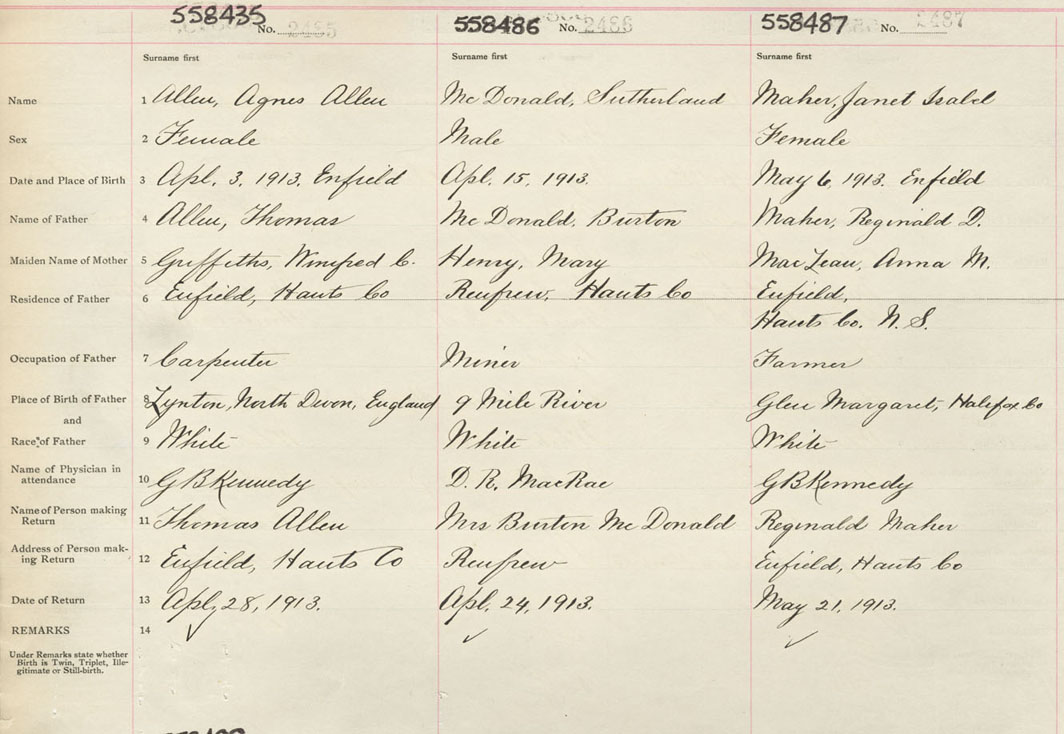 558435 No. 2485 558486 No. 2486 558487 No. 2487
Surname first Surname first Surname first
Name 1 Allen, Agnes Allen Mc Donald, Sutherland Maher, Janet Isabel
Sex 2 Female Male Female
Date and Place of Birth 3 Apl. 3, 1913. Enfield Apl. 15, 1913. May 6, 1913. Enfield
Name of Father 4 Allen, Thomas Mc Donald, Burton Maher, Reginald D.
Maiden Name of Mother 5 Griffiths, Winifred C. Henry, Mary MacLean, Anna M.
Residence of Father 6 Enfield, Hants Co Renfrew, Hants Co Enfield,
Hants Co. N. S.
Occupation of Father 7 Carpenter Miner Farmer
Place of Birth of Father 8 Lynton, North Devon, England 9 Mile River Glen Margaret, Halifax Co
and
Race of Father 9 White White White
Name of Physician in
attendance 10 G B Kennedy D. R. MacRae G B Kennedy
Name of Person making
Return 11 Thomas Allen Mrs Burton Mc Donald Reginald Maher
Address of Person mak-
ing Return 12 Enfield, Hants Co Renfrew Enfield, Hants Co
Date of Return 13 Apl. 28, 1913. Apl. 24, 1913. May 21, 1913.
REMARKS 14
Under Remarks state whether
Birth is Twin, Triplet, Ille-
gitimate or Still-birth.